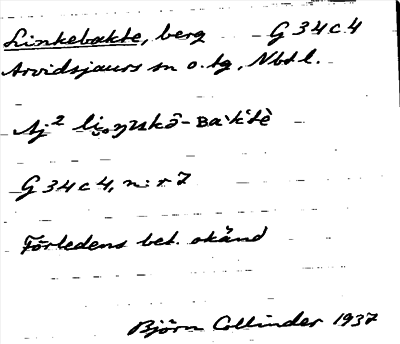 Linkebakte, berg G 34 c 4
Arvidsjaurs sn o. tg, Nbtl.
Aj² -ʙᴀ`k‛tè
G 34 c 4, n:r 7
Förledens bet. okänd
Björn Collinder 1937